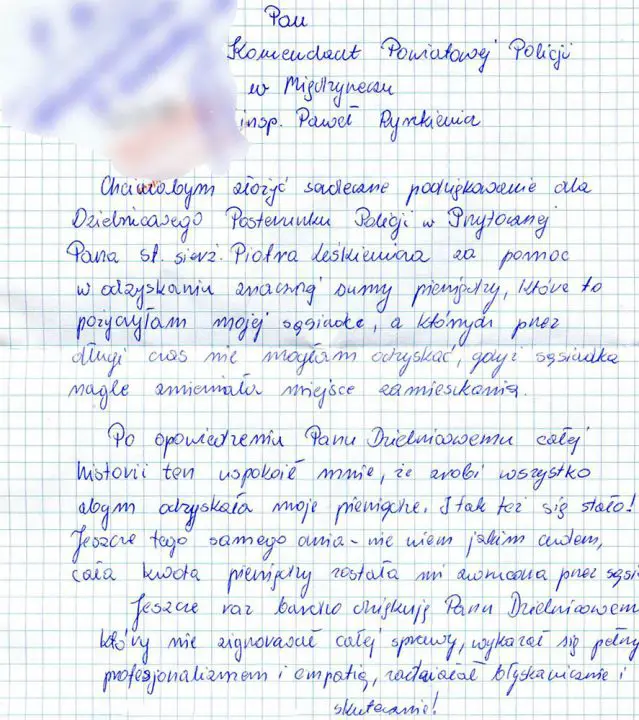 Pan
Komendant Powiatowej Policji
w Międzyrzeczu
insp. Paweł Rynkiewicz
Chciałabym złożyć serdeczne podziękowanie dla
Dzielnicowego Posterunku Policji w Przytocznej
Pana st. sierż. Piotra Leśkiewicza za pomoc
w odzyskaniu znacznej sumy pieniędzy, które to
pożyczyłam mojej sąsiadce, a których przez
długi czas nie mogłam odzyskać, gdyż sąsiadka
nagle zmieniała miejsce zamieszkania.
Po opowiedzeniu Panu Dzielnicowemu całej
historii ten uspokoił mnie, że zrobi wszystko
abym odzyskała moje pieniądze. I tak też się stało!
Jeszcze tego samego dnia - nie wiem jakim cudem,
cała kwota pieniędzy została mi zwrócona przez sąsi
Jeszcze raz bardzo dziękuję Panu Dzielnicowem
który nie zignorował całej sprawy, wykazał się pełny
profesjonalizmem i empatią, zadziałał błyskawicznie i
skutecznie!